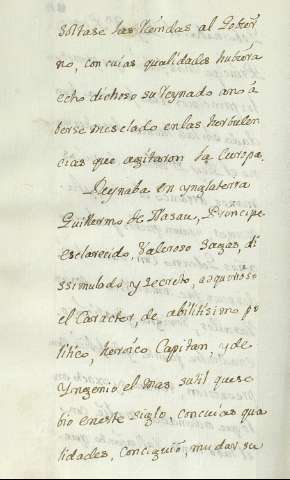 soltase las riendas al Gobier
no, con cuias qualidades hubiera
echo dichoso su Reynado ano á
berse mesclado en las herbulen
cias que agitaron la Europa.
Reynaba en ynglaterra
Guillermo de Nasau, Principe
esclarecido, Valeroso Sagas, di
ssimulado y secreto,
el Caracter, de abilitisimo po
litico, heroico Capitan, y de
Yngenio el mas sutil que se
bio en este siglo, con cuias qua
lidades, Conciguió, mudar su